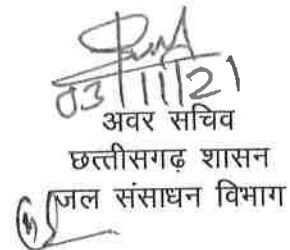 03/11/21
अवर सचिव
छत्तीसगढ़ शासन
जल संसाधन विभाग